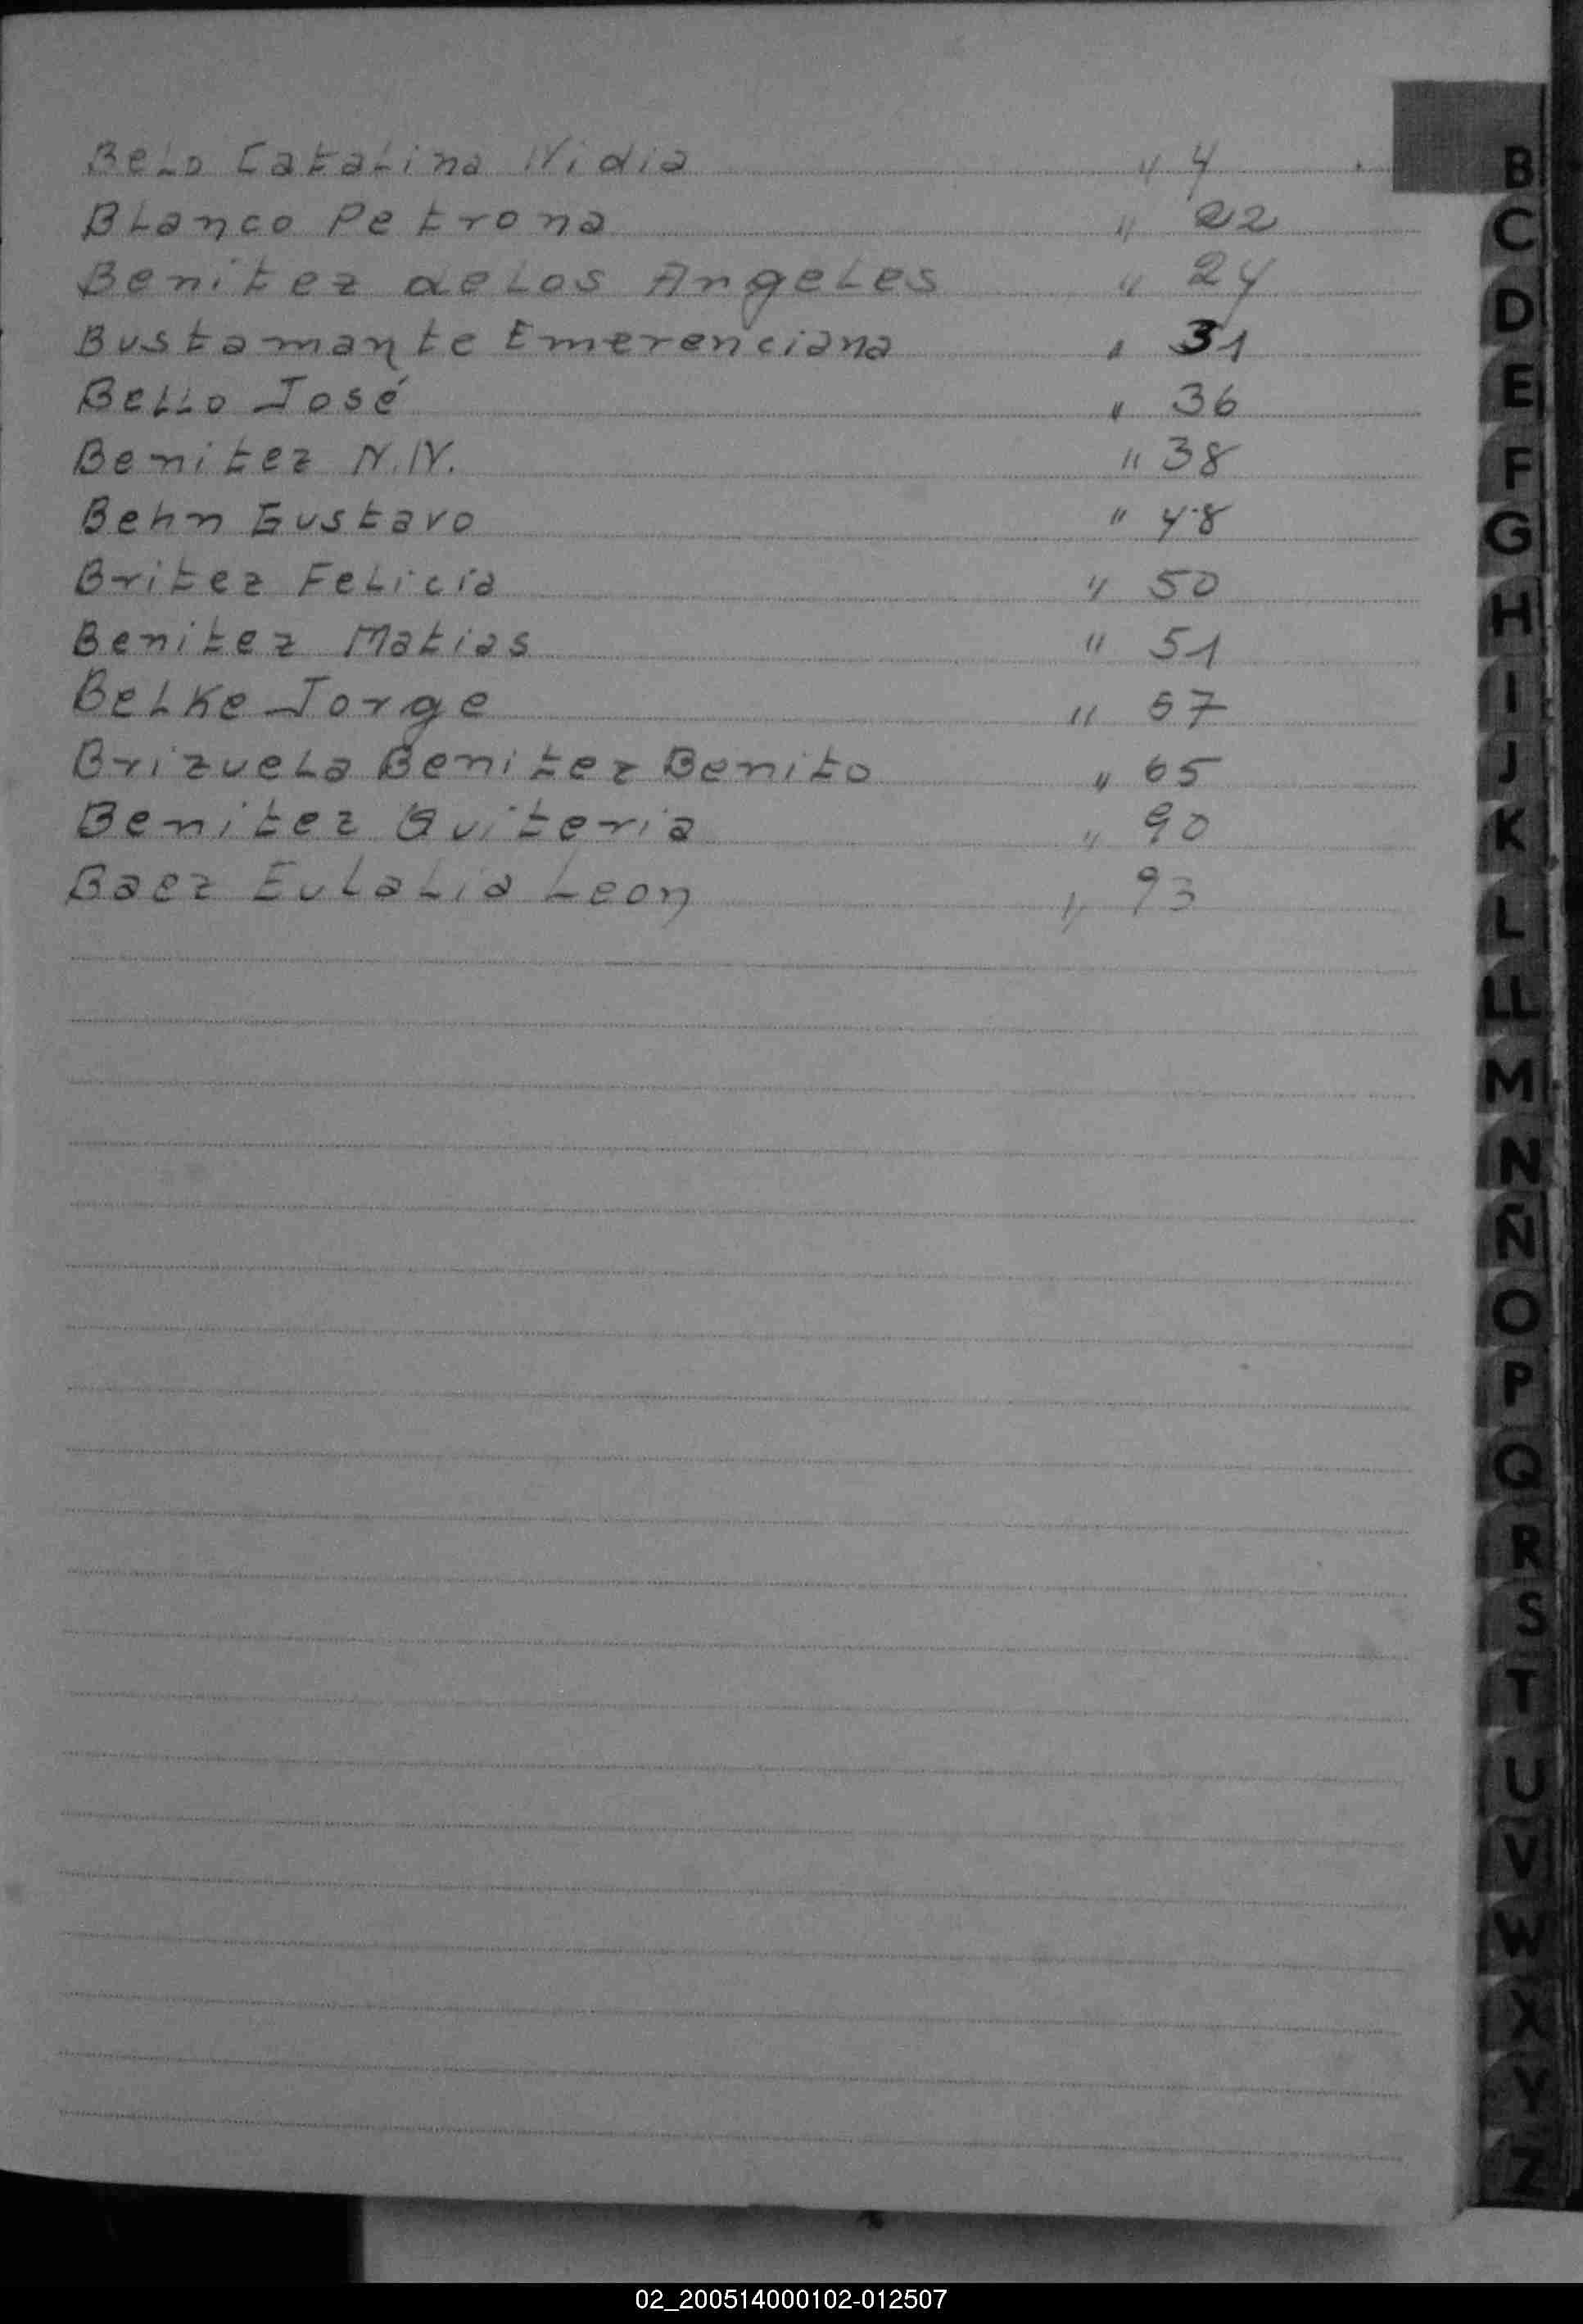 Belo Catalina Nidia " 4
Blanco Petrona " 22
Benitez de Los Angeles " 24
Bustamante Emerenciana " 31
Bello José " 36
Benitez N.N. " 38
Behn Gustavo " 48
Britez Felicia " 50
Benitez Matias " 51
Belke Jorge " 57
Brizuela Benitez Benito " 65
Benitez Quiteria " 90
Baez Eulalia Leon " 93
B
C
D
E
F
G
H
I
J
K
L
LL
M
N
Ñ
O
P
Q
R
S
T
U
V
W
X
Y
Z
02_200514000102-012507